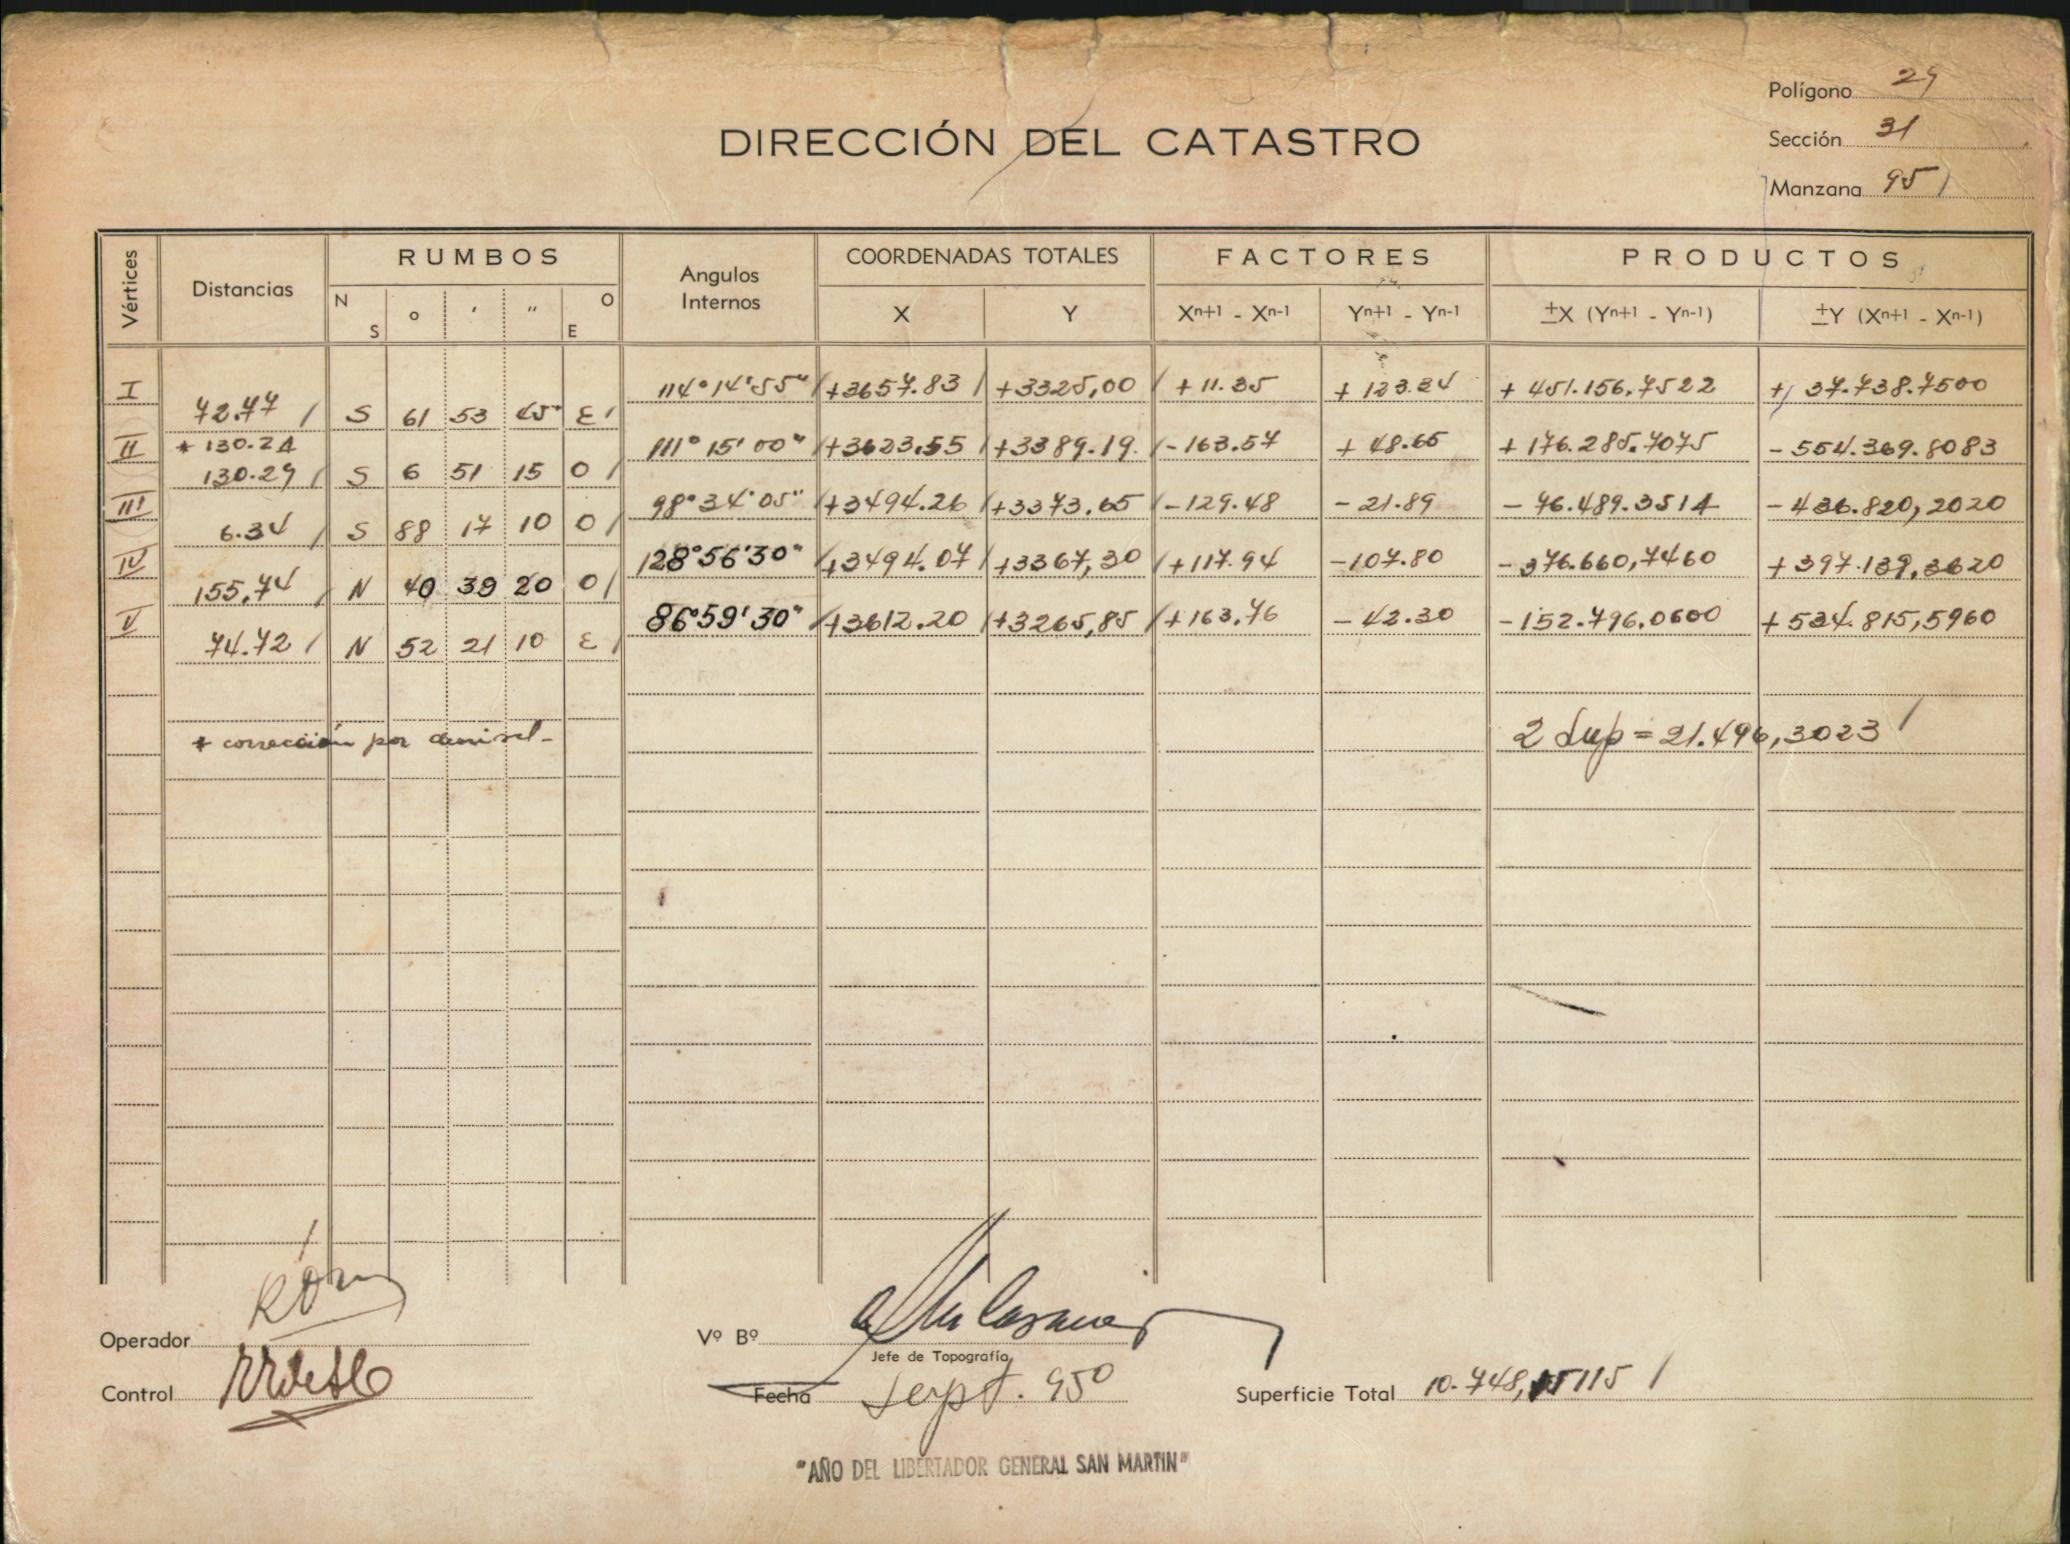 Polígono 29
DIRECCIÓN DEL CATASTRO
Sección 31
Manzana 95
Vértices Distancias RUMBOS Angulos Internos COORDENADAS TOTALES FACTORES PRODUCTOS
N S o ' " O E X Y Xn+1 - Xn-1 Yn+1 - Yn-1 ±X (Yn+1 - Yn-1) ±Y (Xn+1 - Xn-1)
I 114°14'55" +3657.83 +3325,00 +11.35 +123.34 +451.156,7522 +37.738.7500
72.77 S 61 53 45 E
II * 130.24 111°15'00" +3623,55 +3389.19. -163.57 +48.65 +176.285.7075 -554.369.8083
130.29 S 6 51 15 O
III 98°34'05" +3494.26 +3373,65 -129.48 -21.89 -76.489.3514 -436.820,2020
6.34 S 88 17 10 O
IV 128°56'30" +3494.07 +3367,30 +117.94 -107.80 -376.660,7460 +397.139,3620
155,74 N 40 39 20 O
V 86°59'30" +3612.20 +3265,85 +163,76 -42.30 -152.796,0600 +534.815,5960
74.72 N 52 21 10 E
* corrección por desnivel-
2 Sup = 21.496,3023
Operador
Vº Bº
Jefe de Topografía
Control
Fecha Sept. 950
Superficie Total 10.748,15115
"AÑO DEL LIBERTADOR GENERAL SAN MARTIN"